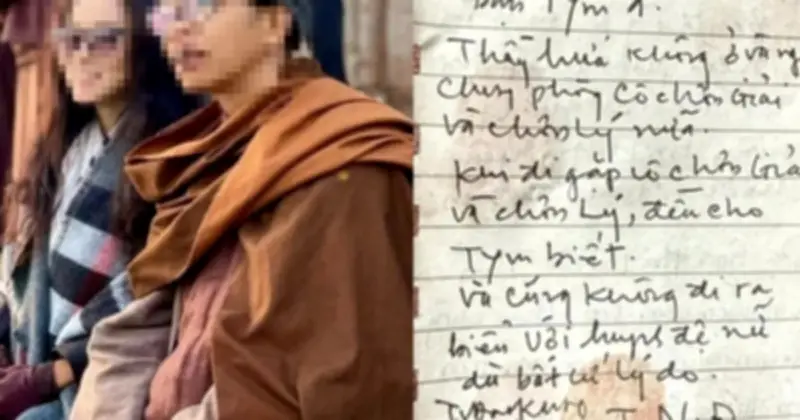 bạn Tym ạ.
Thầy hứa không ở và ng
chung phòng cô chơn Giải
và chơn Lý nữa.
khi đi gặp cô chơn Giả
và chơn Lý, đều cho
Tym biết.
và cũng không đi ra
biển với huynh đệ nữ
dù bất cứ lý do.